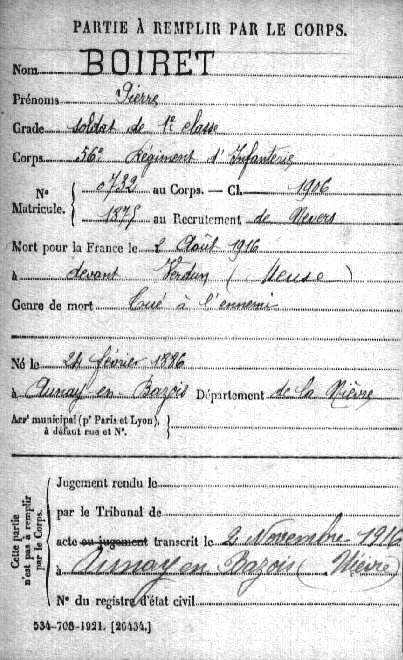 PARTIE À REMPLIR PAR LE CORPS.
Nom BOIRET
Prénoms Pierre
Grade soldat de 1e classe
Corps 56e Régiment d'Infanterie
Nº Matricule. 0732 au Corps. — Cl. 1906
1875 au Recrutement de Nevers
Mort pour la France le 2 Août 1916
à devant Verdun (Meuse)
Genre de mort Tué à l'ennemi
Né le 24 février 1886
à Aunay-en-Bazois Département de la Nièvre
Arrt municipal (pr Paris et Lyon),
à défaut rue et Nº.
Cette partie n'est pas à remplir par le Corps.
Jugement rendu le
par le Tribunal de
acte ou jugement transcrit le 2 Novembre 1916
à Aunay en Bazois (Nièvre)
Nº du registre d'état civil
534-708-1921. [26434.]